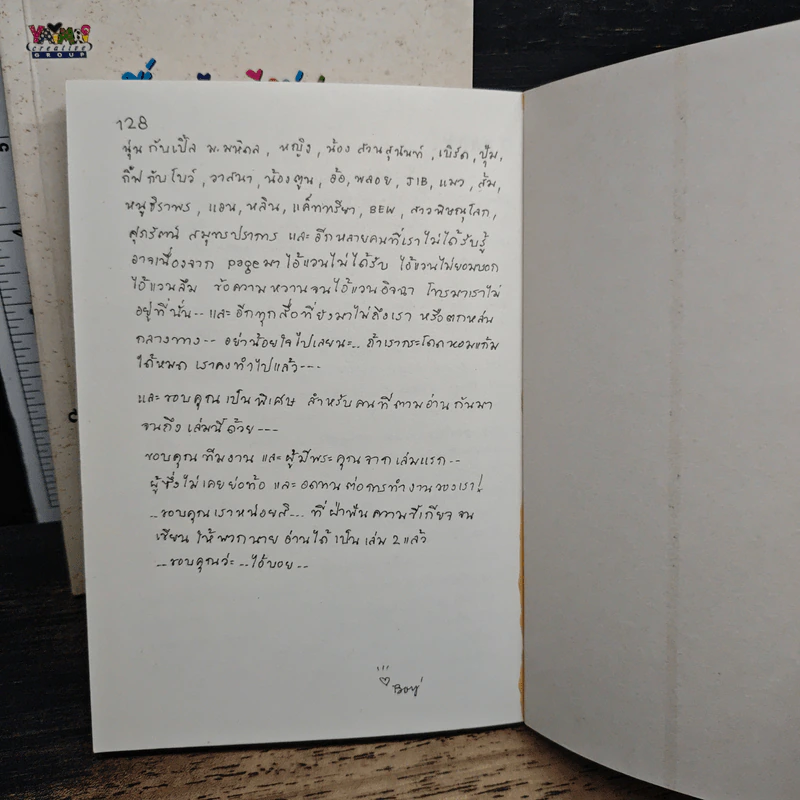 YOYMOS
creative
GROUP
128
นุ่น กับเปิ้ล ม.มหิดล, หญิง, น้อง สวนสุนันท์, เบิร์ด, ปุ้ม,
กิ๊ฟ กับ โบว์, วาสนา, น้องตูน, อ้อ, พลอย, JIB, แมว, ส้ม,
หนูธิราพร, แอน, หลิน, แค็ททรียา, BEW, สาวพิษณุโลก,
สุภรัตน์ สมุทรปราการ และ อีกหลายคนที่เราไม่ได้รับรู้
อาจเนื่องจาก pageมา ไอ้แวนไม่ได้รับ ไอ้แวนไม่ยอมบอก
ไอ้แวนลืม ข้อความหวานจนไอ้แวนอิจฉา โทรมาเราไม่
อยู่ที่นั่น-- และ อีกทุกสื่อที่ยังมาไม่ถึงเรา หรือตกหล่น
กลางทาง-- อย่าน้อยใจไปเลยนะ-- ถ้าเรากระโดดหอมแก้ม
ได้หมด เราคงทำไปแล้ว---
และ ขอบคุณเป็นพิเศษ สำหรับคนที่ตามอ่านกันมา
จนถึง เล่มนี้ด้วย---
ขอบคุณ ทีมงาน และ ผู้มีพระคุณจากเล่มแรก--
ผู้ซึ่งไม่เคยย่อท้อ และ อดทน ต่อการทำงานของเรา!
--ขอบคุณเราหน่อยสิ--- ที่ฝ่าฟันความขี้เกียจ จน
เขียน ให้พวกนาย อ่านได้ เป็น เล่ม 2 แล้ว
--ขอบคุณว่ะ --ไอ้บอย--
Boy